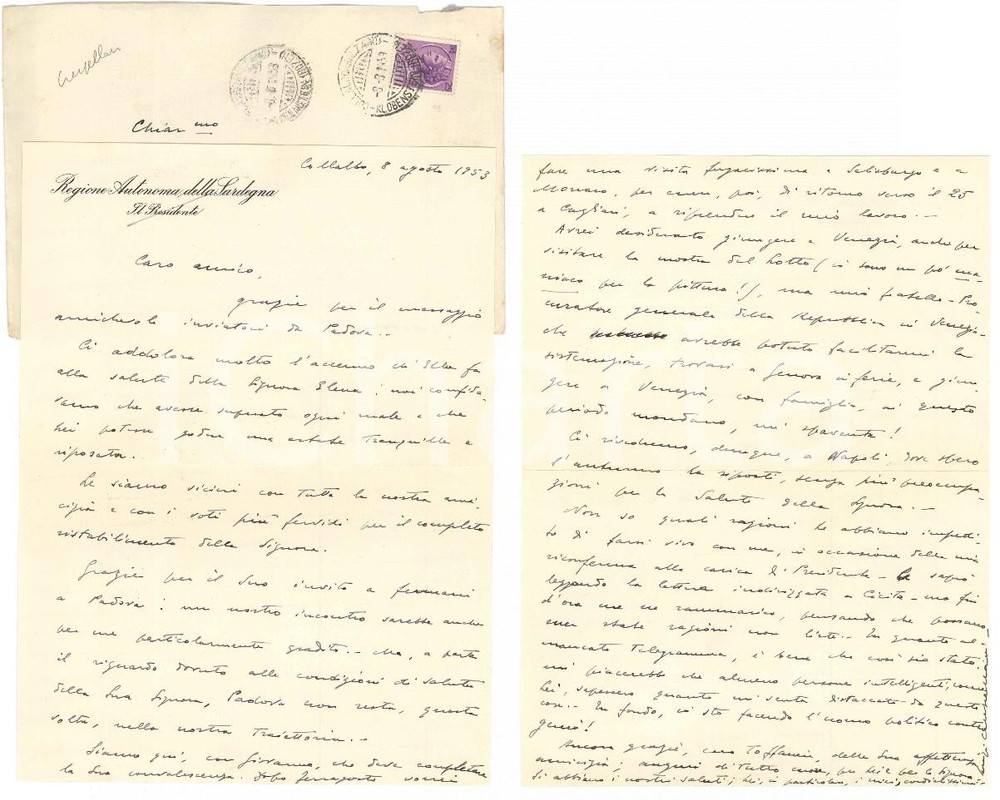 Chiar mo
Collalbo, 8 agosto 1953
Regione Autonoma della Sardegna
Il Presidente
Caro amico,
grazie per il messaggio
amichevole inviatomi da Padova. -
Ci addolora molto l'accenno ch'Ella fa
alla salute della Signora Elena: noi confidia-
mo che avesse superato ogni male e che
Lei potesse godere una estate tranquilla e
riposata.
Le siamo vicini con tutta la nostra ami-
cizia e con i voti più fervidi per il completo
ristabilimento della Signora.
Grazie per il Suo invito a fermarmi
a Padova: un nostro incontro sarebbe anche
per me particolarmente gradito. - Ma, a parte
il riguardo dovuto alle condizioni di salute
della Sua Signora, Padova non resta, questa
volta, nella nostra traiettoria. -
Siamo qui, con Giovanna, che deve completare
la Sua convalescenza. Dopo ferragosto vorrei
fare una visita fugacissima a Salisburgo e a
Monaco, per esser, poi, di ritorno verso il 25
a Cagliari, a riprendere il mio lavoro. -
Avrei desiderato giungere a Venezia, anche per
visitare la mostra del Lotto (ci sono un pò ma-
niaco per la pittura!), ma mio fratello - Pro-
curatore generale della Repubblica in Venezia -
che avrebbe potuto facilitarmi la
sistemazione, trovasi a Genova in ferie, e giun-
gere a Venezia, con famiglia, in questo
periodo mondano, mi spaventa!
Ci rivedremo, dunque, a Napoli, dove spero
l'autunno La riporti, senza più preoccupa-
zioni per la Salute della Signora. -
Non so quali ragioni Le abbiano impedi-
to di farsi vivo con me, in occasione della mia
riconferma alla carica di Presidente -
leggendo la lettera indirizzata a - ma fin
d'ora me ne rammarico, pensando che possano
esser state ragioni non liete. - In quanto al
mancato telegramma, è bene che così sia stato:
mi piacerebbe che almeno persone intelligenti, come
Lei, sapessero quanto mi senta distaccato da queste
cose. - In fondo, io sto facendo l'uomo politico contro
genio!
Ancora grazie, caro Toffanin, della Sua affettuosa
amicizia; auguri di tutto cuore, per Lei e per la Signora,
Si abbiano i nostri saluti; Lei, in particolare, i miei, cordialissimi